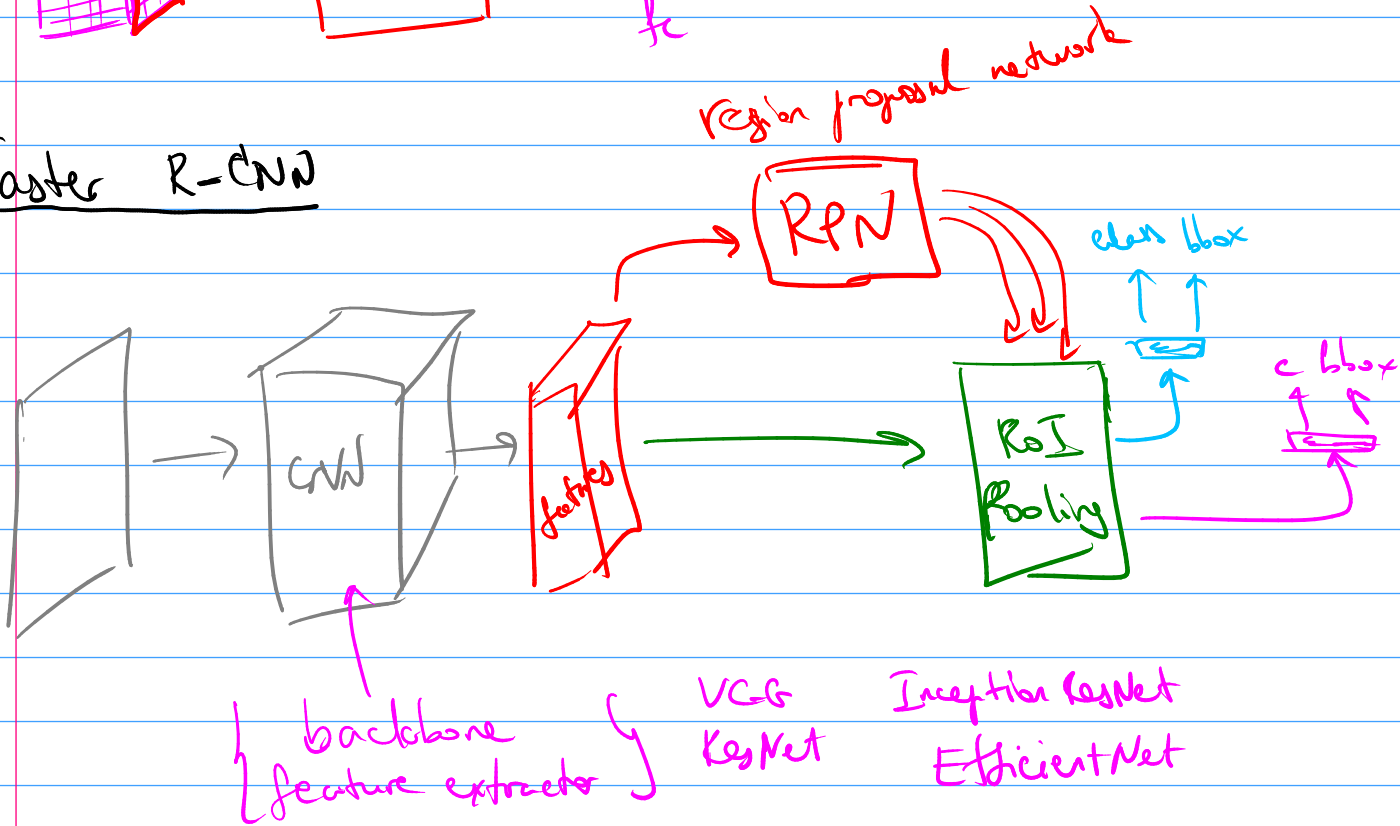 fc
region proposal network
aster R-CNN
RPN
class bbox
c bbox
CNN
features
RoI
Pooling
backbone
feature extractor
VGG
ResNet
Inception ResNet
EfficientNet